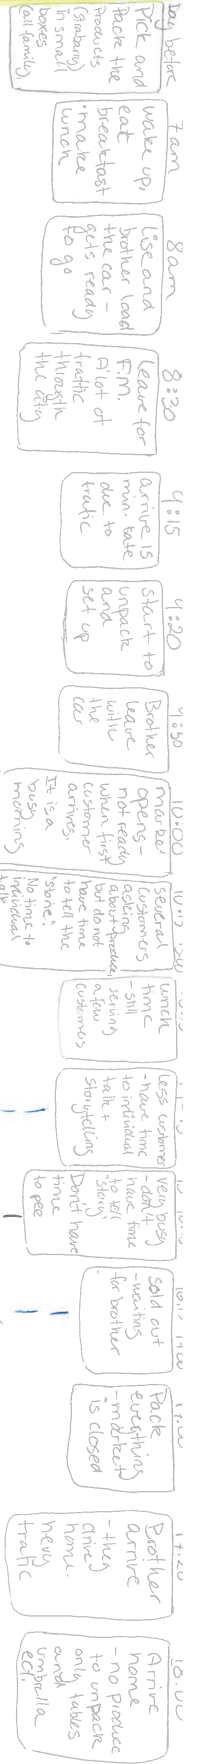 Day before
Pick and
Pack the
Products
(Strabarry)
in small
boxes
(all family)
7 am
wake up,
eat
breakfast
- make
lunch
8 am
Lise and
brother load
the car -
gets ready
to go
8:30
leave for
F.M.
A lot of
traffic
through
the city
9:15
arrive 15
min. late
due to
trafic
9:20
start to
unpack
and
set up
9:50
Brother
leave
with
the
car
10:00
market
opens -
not ready
when first
customer
arrives.
It is a
busy
morning
several
customers
asking
about produce,
but do not
have time
to tell the
"storie".
No time to
individual
talk
lunch
time
- still
serving
a few
customers
Less customer
- have time
to individual
talk +
storytelling
very busy
- don't
have time
to tell
"story"
Don't have
time
to pee
sold out
- waiting
for brother
Pack
everything
- market
is closed
17.20
Brother
arrive
- they
drive
home.
hevy
trafic
18.00
Arrive
home
- no produce
to unpack
only tables
and
umbrella
ect.